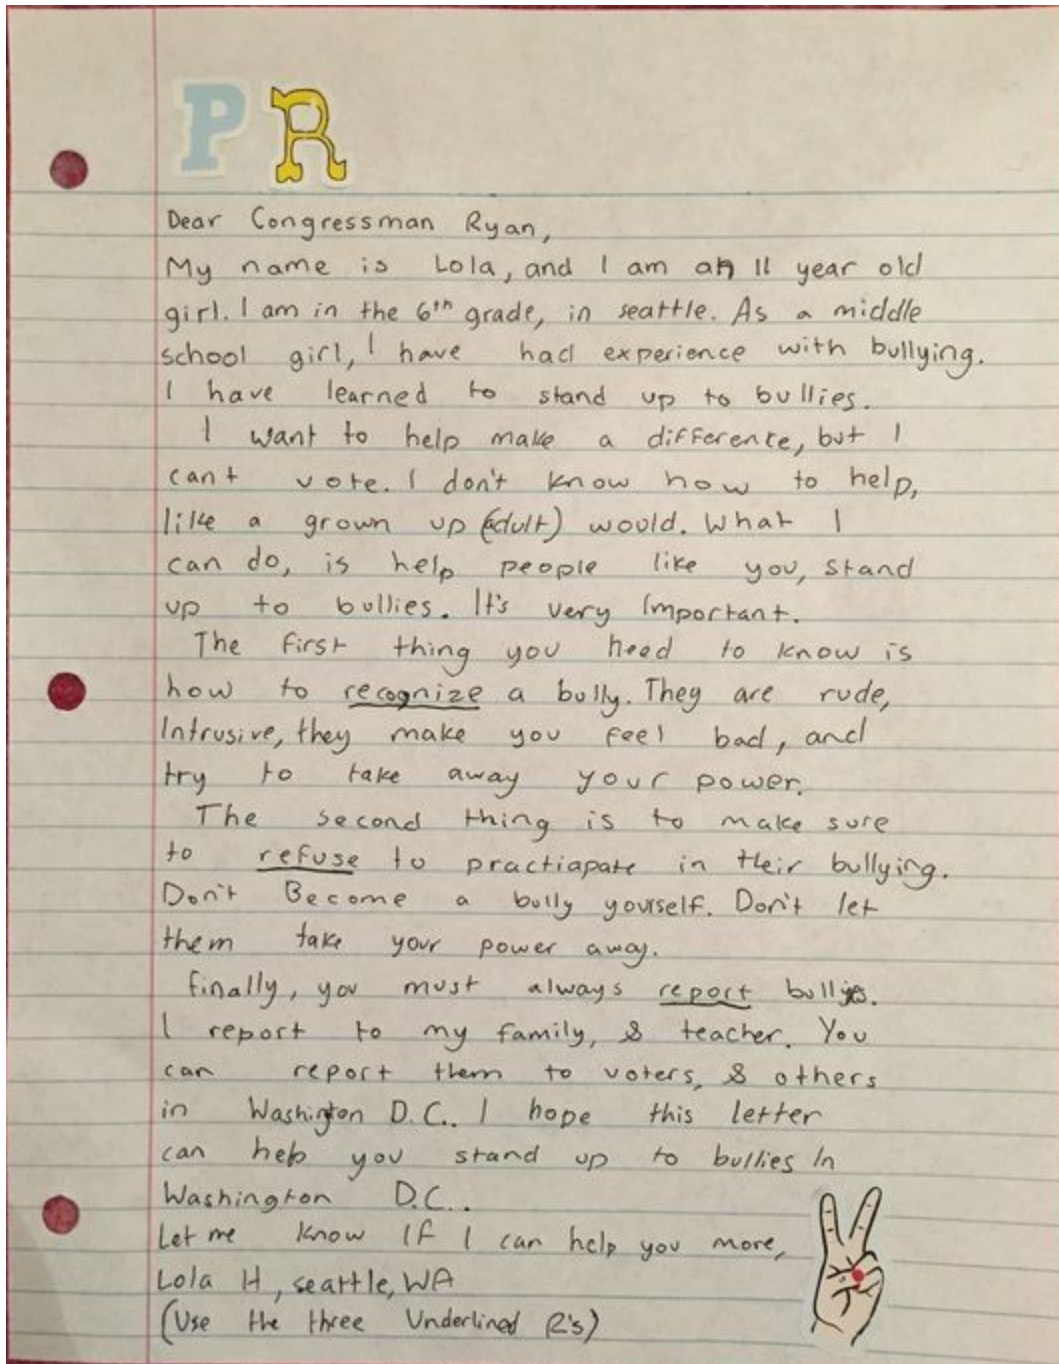 PR
Dear Congressman Ryan,
My name is Lola, and I am an 11 year old
girl. I am in the 6th grade, in seattle. As a middle
school girl, I have had experience with bullying.
I have learned to stand up to bullies.
I want to help make a difference, but I
can't vote. I don't know how to help,
like a grown up (adult) would. What I
can do, is help people like you, stand
up to bullies. It's very Important.
The first thing you need to know is
how to recognize a bully. They are rude,
Intrusive, they make you feel bad, and
try to take away your power.
The second thing is to make sure
to refuse to practiapate in their bullying.
Don't Become a bully yourself. Don't let
them take your power away.
finally, you must always report bullys.
I report to my family, & teacher. You
can report them to voters, & others
in Washington D.C.. I hope this letter
can help you stand up to bullies In
Washington D.C..
Let me know If I can help you more,
Lola H, seattle, WA
(Use the three Underlined R's)